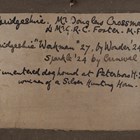 bridgeshire. Mr Douglas Crossman
& Mr G.R.C. Foster. M.F.
bridgeshire "Watman" 27. by Wonder 24
Speckle '24 by Carnival
unentered doghound at Peterboro H.S.
winner of a Silver Hunting Horn.